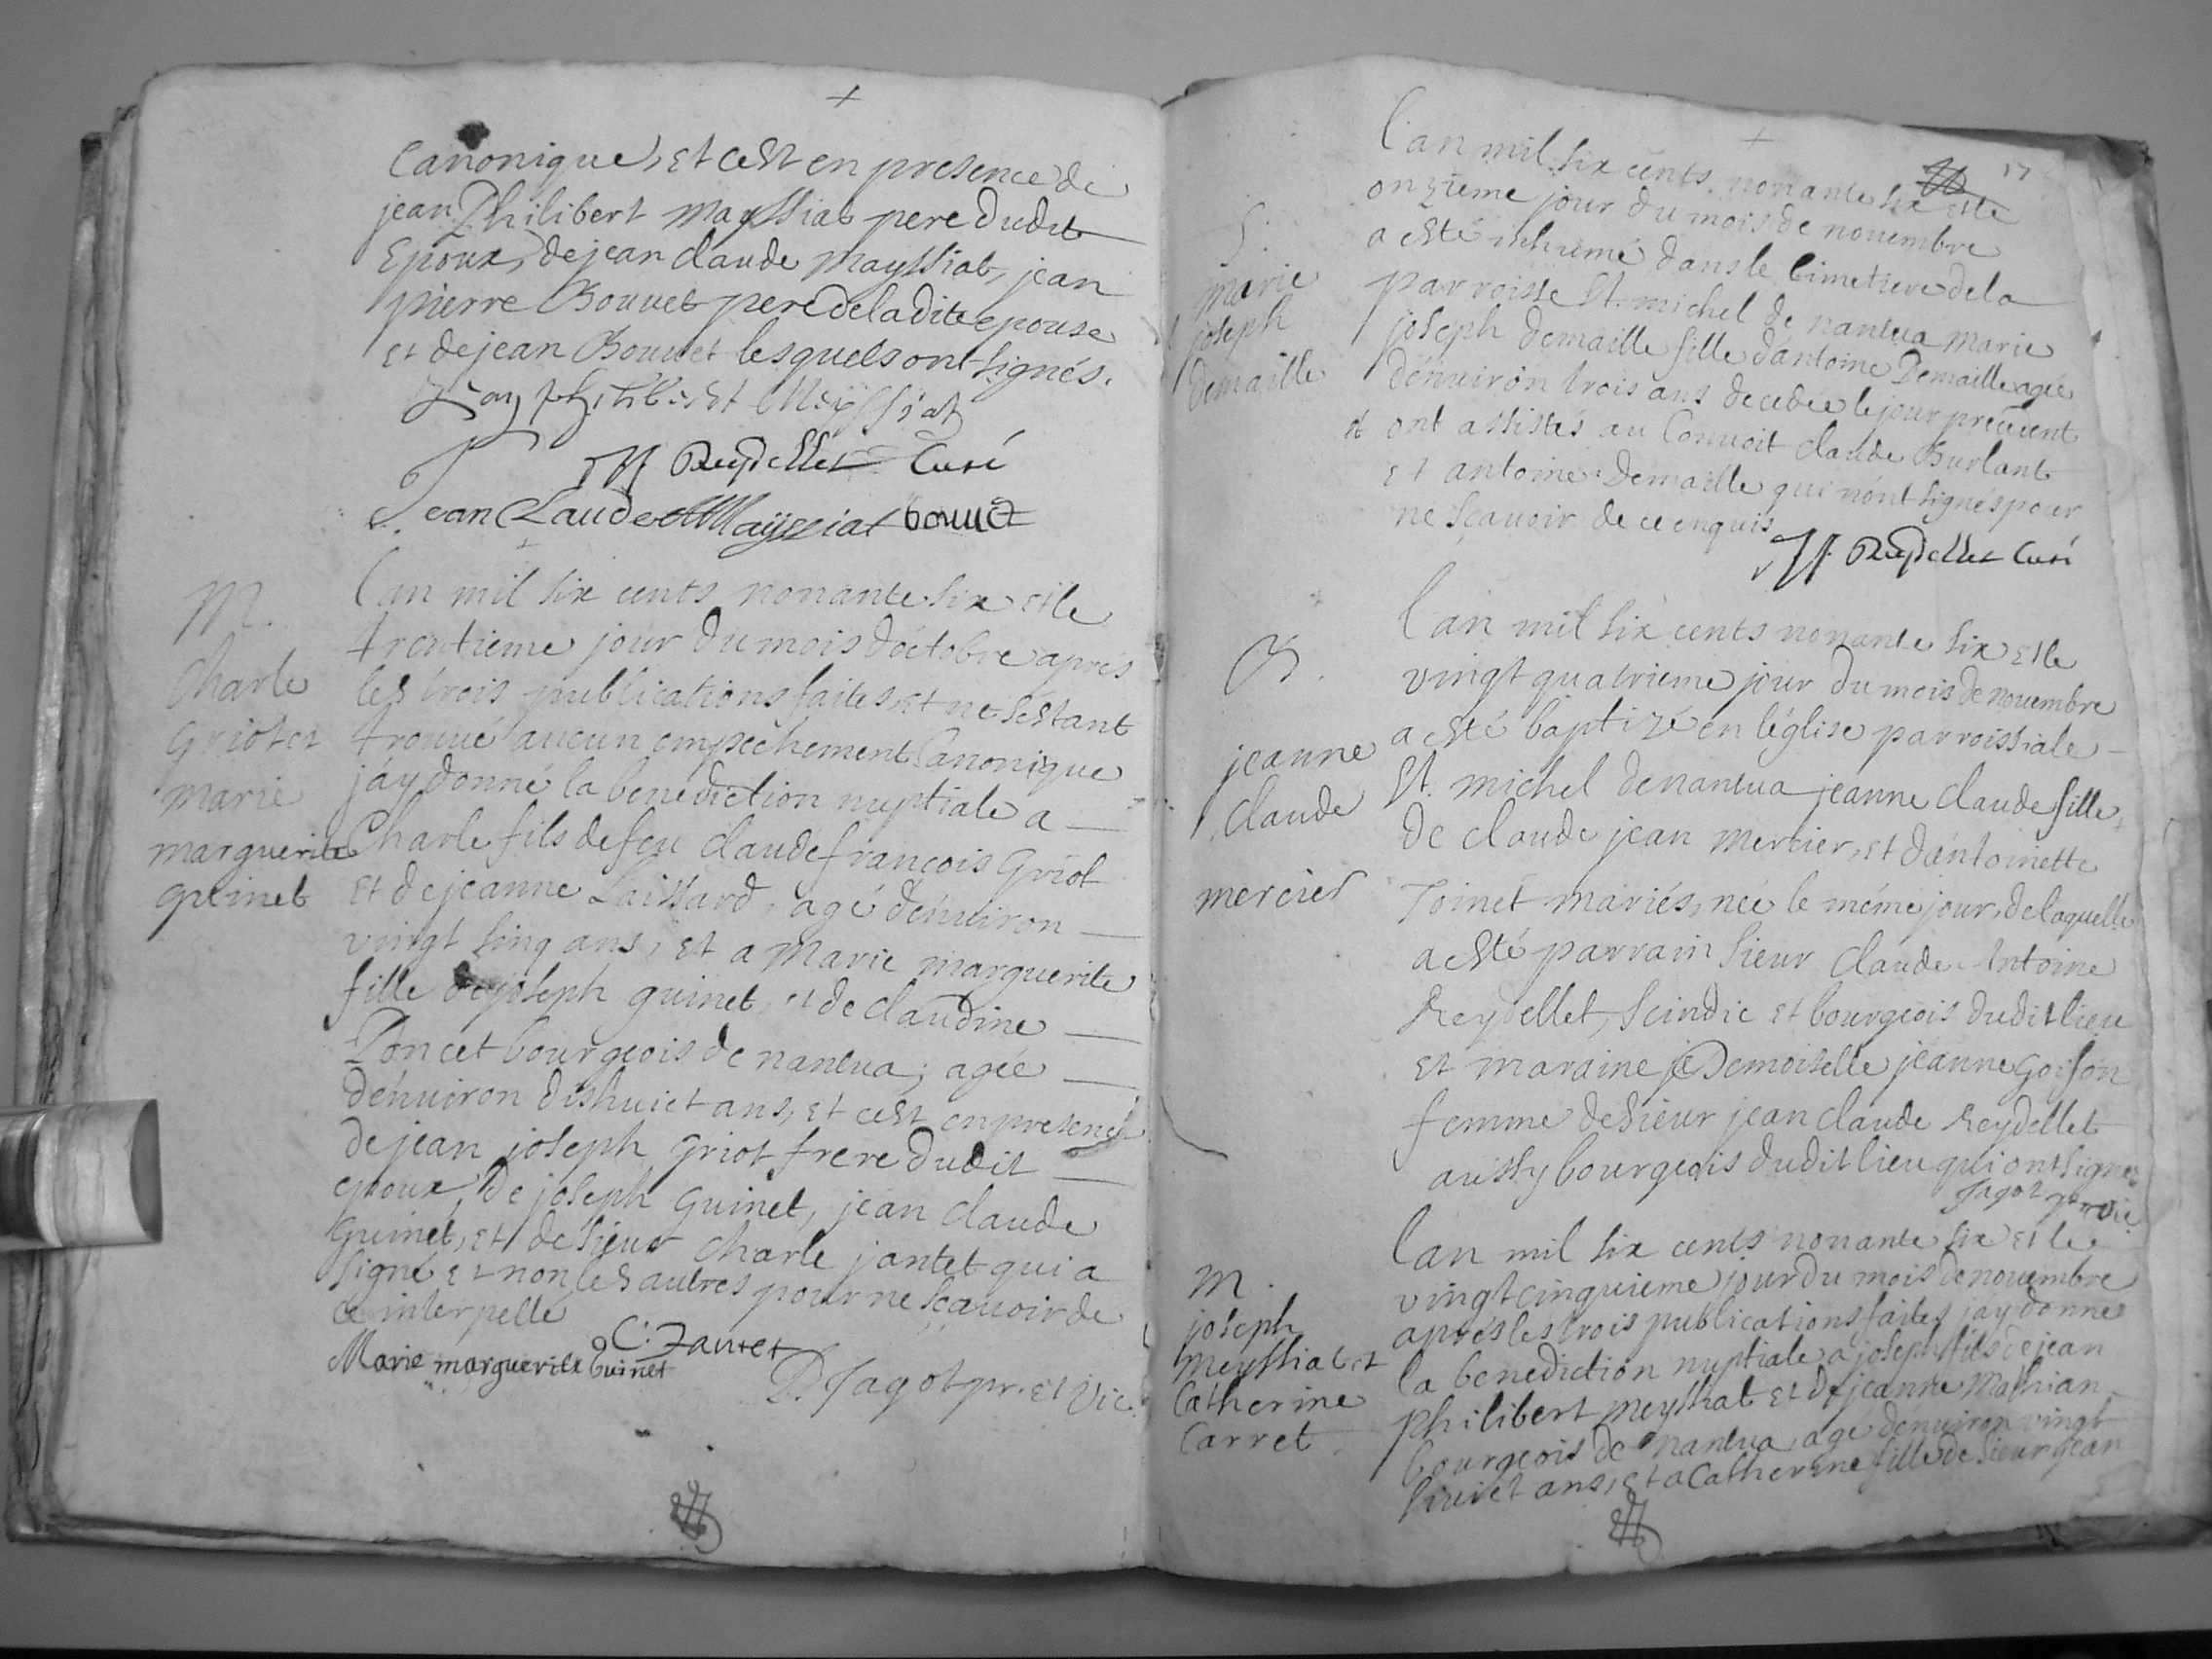 canonique, et cest en presence de
jean Philibert mayssiat pere dudit
Epoux, de jean claude mayssiat, jean
pierre Bouuet pere deladite epouse
et de jean Bouuet lesquels ont signés.
Jean philibert Meyssiat
Reydellet Curé
Jean Claude Mayssiat bouuet
M.
Charle
Griot et
marie
marguerite
guinet
l'an mil six cents nonante six et le
trentieme jour du mois d'octobre aprés
les trois publications faites, et ne sestant
trouué aucun empechement Canonique
j'ay donné la benediction nuptiale a
Charle fils de feu claude françois Griot
et de jeanne Laissard, agé d'enuiron
vingt sinq ans, et a Marie marguerite
fille de joseph guinet, et de claudine
Poncet bourgeois de nantua, agée
d'enuiron dishuict ans, et cest en presence
de jean joseph griot frere dudit
epoux, de joseph Guinet, jean claude
Guinet, et de sieur charle jantet qui a
signé et non les autres pour ne sçauoir de
ce interpellé
C. Jantet
Marie marguerite Guinet
D. Jagot pr. et vic.
17
S.
marie
joseph
demaille
l'an mil six cents nonante six et le
onzieme jour du mois de nouembre
a esté inhumé dans le Cimetiere de la
parroisse St. michel de nantua marie
joseph demaille fille d'antoine Demaille agée
d'enuiron trois ans decedée le jour precedent
et ont assistés au Conuoit claude Burlant
et antoine Demaille qui n'ont signés pour
ne sçauoir de ce enquis
Reydellet Curé
B.
jeanne
claude
mercier
l'an mil six cents nonante six et le
vingt quatrieme jour du mois de nouembre
a esté baptizé en l'église parroissiale
St. michel de nantua jeanne claude fille
de claude jean mercier, et d'antoinette
Toinet mariés, née le méme jour, de laquelle
a esté parrain sieur claude Antoine
Reydellet, scindic et bourgeois dudit lieu
et maraine Demoiselle jeanne Goison
femme de sieur jean claude Reydellet
aussy bourgeois dudit lieu qui ont signes
Jagot pr vic.
M.
joseph
meyssiat et
Catherine
Carret
l'an mil six cents nonante six et le
vingt cinquieme jour du mois de nouembre
aprés les trois publications faites j'ay donné
la benediction nuptiale a joseph fils de jean
philibert meyssiat et de jeanne Mathian
bourgeois de nantua, agé d'enuiron vingt
huict ans, et a Catherine fille de sieur jean